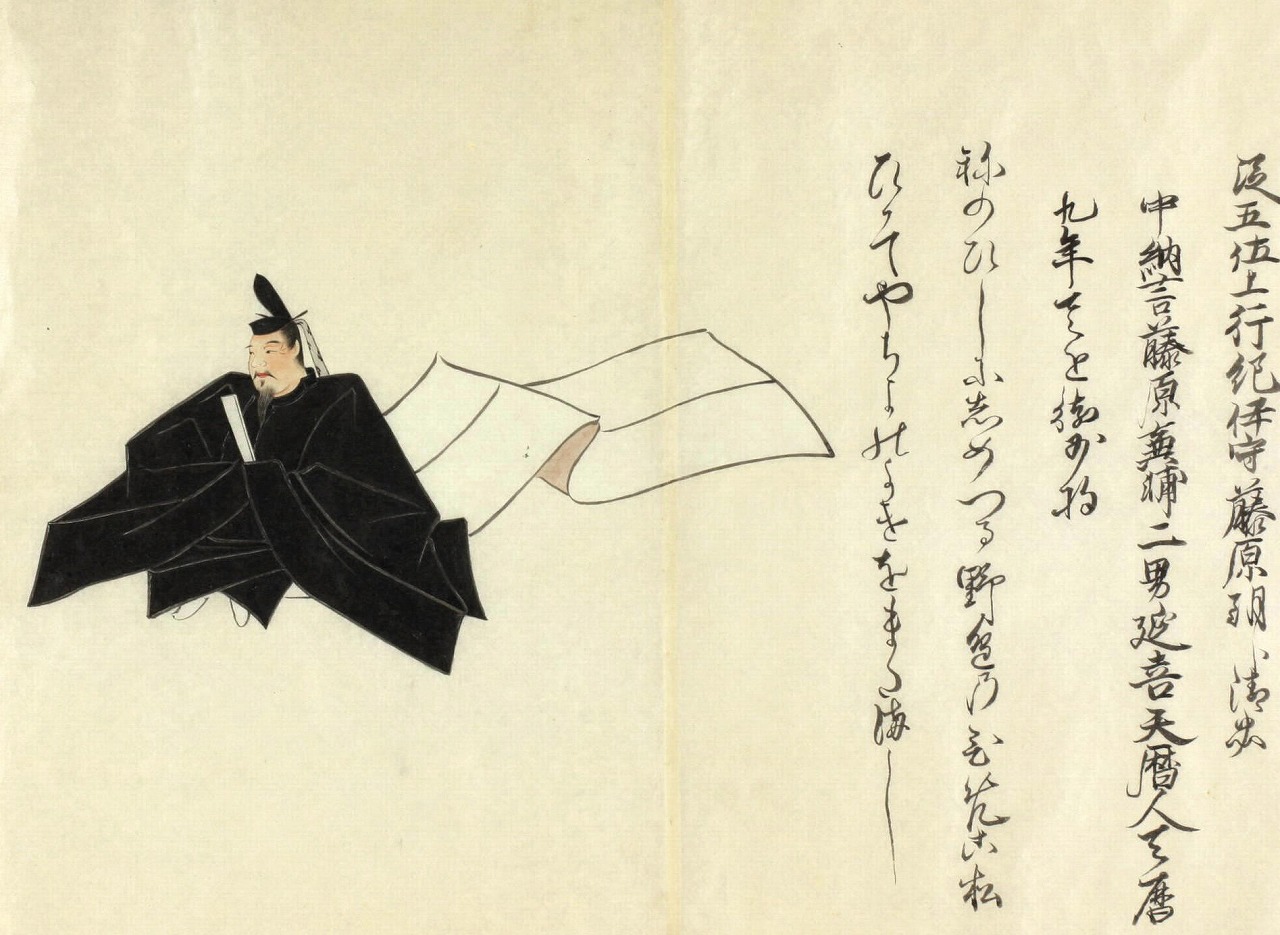 従五位上行紀伊守藤原朝臣清正
中納言藤原兼輔二男延喜天暦人天暦
九年
祢のひしに志めつる野邊乃ひめこ松
ひかてやちよのかけをまたまし